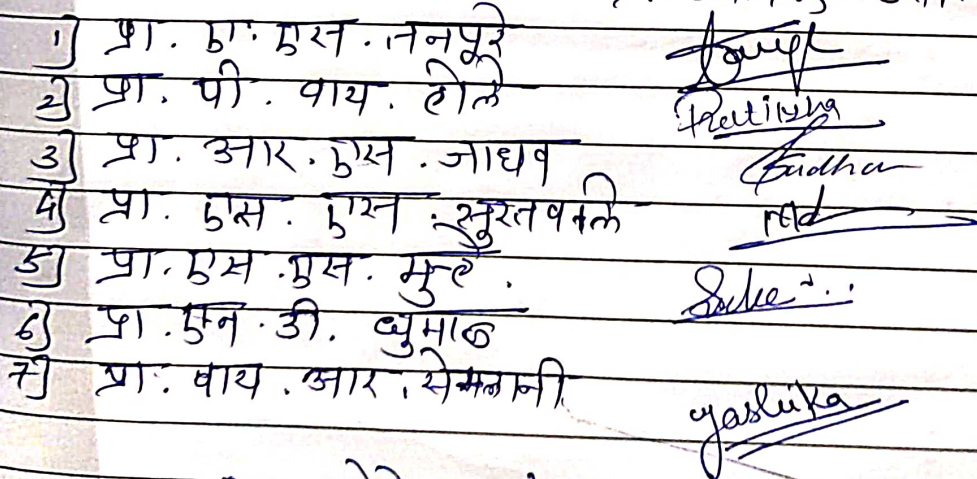 1] प्रा. ए. एस. तनपूरे
2] प्रा. पी. वाय. होले Pratiksha
3] प्रा. आर. एस. जाधव Jadhav
4] प्रा. एस. एस. सुरतवाले
5] प्रा. एस. एस.
6] प्रा. एन. डी. धुमाळ
7] प्रा. वाय. आर. सेमलानी yashika